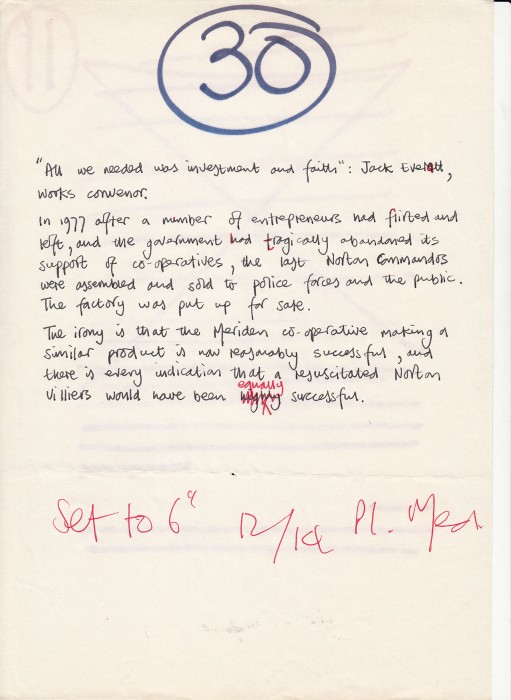 30
"All we needed was investment and faith": Jack Everatt,
works convenor.
In 1977 after a number of entrepreneurs had flirted and
left, and the government had tragically abandoned its
support of co-operatives, the last Norton Commandos
were assembled and sold to police forces and the public.
The factory was put up for sale.
The irony is that the Meriden co-operative making a
similar product is now reasonably successful, and
there is every indication that a resuscitated Norton
equally
Villiers would have been highly successful.
Set to 6" 12/14 Pl. Med.
11